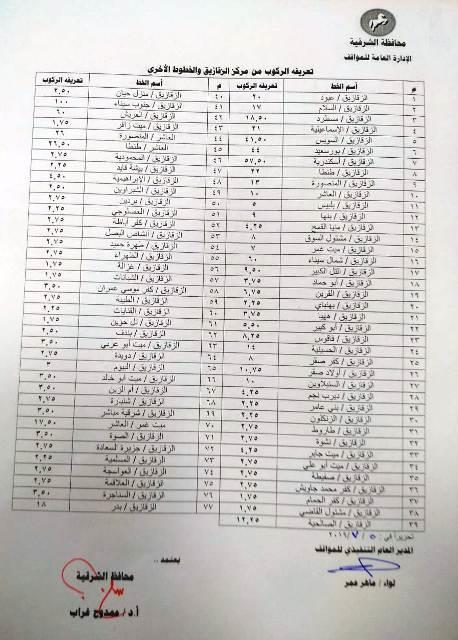 محافظة الشرقية
الإدارة العامة للمواقف
تعريفه الركوب من مركز الزقازيق والخطوط الأخرى
م اسم الخط تعريفه الركوب م اسم الخط تعريفه الركوب
١ الزقازيق / عبود ٢٠ ٤٠ الزقازيق / منزل حيان ٢,٥٠
٢ الزقازيق / السلام ١٧ ٤١ الزقازيق / جنوب سيناء ١٠٠
٣ الزقازيق / مسطرد ١٨,٥٠ ٤٢ الزقازيق / العريش ٦٠
٤ الزقازيق / الإسماعيلية ٢١ ٤٣ الزقازيق / ميت زافر ١,٧٥
٥ الزقازيق / السويس ٤١,٥٠ ٤٤ العاشر / المنصورة ٢٦
٦ الزقازيق / بورسعيد ٤٤ ٤٥ العاشر / طنطا ٢٦,٥٠
٧ الزقازيق / أسكندرية ٥٧,٥٠ ٤٦ الزقازيق / المحمودية ٢,٧٥
٨ الزقازيق / طنطا ٢٢ ٤٧ الزقازيق / بيشة قايد ٢,٢٥
٩ الزقازيق / المنصورة ١٣ ٤٨ الزقازيق / الابراهيمية ٤,٥٠
١٠ الزقازيق / العاشر ١٠ ٤٩ الزقازيق / الشبراوين ٢,٥٠
١١ الزقازيق / بلبيس ٥ ٥٠ الزقازيق / بردين ٢,٧٥
١٢ الزقازيق / بنها ٩ ٥١ الزقازيق / الغصلوجي ٢,٧٥
١٣ الزقازيق / منيا القمح ٤,٢٥ ٥٢ الزقازيق / كفر أباظة ٢,٧٥
١٤ الزقازيق / مشتول السوق ٨ ٥٣ الزقازيق / أنشاص البصل ٢,٧٥
١٥ الزقازيق / ميت غمر ٧ ٥٤ الزقازيق / شهرة حميد ٢,٧٥
١٦ الزقازيق / شمال سيناء ٦٠ ٥٥ الزقازيق / الظهراء ٢,٧٥
١٧ الزقازيق / التل الكبير ٩,٥٠ ٥٦ الزقازيق / غزالة ٢,٧٥
١٨ الزقازيق / أبو حماد ٣,٧٥ ٥٧ الزقازيق / الشبانات ٢,٧٥
١٩ الزقازيق / القرين ٦,٧٥ ٥٨ الزقازيق / كفر موسي عمران ٣,٥٠
٢٠ الزقازيق / بهنباي ٢,٢٥ ٥٩ الزقازيق / الطيبة ٢,٧٥
٢١ الزقازيق / ههيا ٣,٧٥ ٦٠ الزقازيق / القنايات ٢,٢٥
٢٢ الزقازيق / أبو كبير ٥,٥٠ ٦١ الزقازيق / تل حوين ٢,٧٥
٢٣ الزقازيق / فاقوس ٨,٢٥ ٦٢ الزقازيق / بندف ٢,٥٠
٢٤ الزقازيق / الحسينية ١٤ ٦٣ الزقازيق / ميت أبو عربي ٣,٥٠
٢٥ الزقازيق / كفر صقر ٨ ٦٤ الزقازيق / دويدة ٢,٧٥
٢٦ الزقازيق / أولاد صقر ١٠,٧٥ ٦٥ الزقازيق / اليوم ٣
٢٧ الزقازيق / السنبلاوين ١٠ ٦٦ الزقازيق / ميت أبو خالد ٣,٥٠
٢٨ الزقازيق / ديرب نجم ٤,٢٥ ٦٧ الزقازيق / أم الزين ٣,٥٠
٢٩ الزقازيق / بني عامر ٢,٢٥ ٦٨ الزقازيق / شنبارة ٢,٧٥
٣٠ الزقازيق / الزنكلون ٢,٢٥ ٦٩ الزقازيق / شرقية مباشر ٣,٥٠
٣١ الزقازيق / طاروط ٢,٧٥ ٧٠ ميت غمر / العاشر ١٧,٥٠
٣٢ الزقازيق / نشوة ٢,٧٥ ٧١ الزقازيق / الصوة ٣,٥٠
٣٣ الزقازيق / ميت جابر ٤,٢٥ ٧٢ الزقازيق / جزيرة السعادة ٢,٧٥
٣٤ الزقازيق / ميت أبو علي ٢,٧٥ ٧٣ الزقازيق / المسلمية ٢,٧٥
٣٥ الزقازيق / صفيطة ٢,٧٥ ٧٤ الزقازيق / العواسجة ٢,٧٥
٣٦ الزقازيق / كفر محمد جاويش ٢,٧٥ ٧٥ الزقازيق / العلاقمة ٢,٧٥
٣٧ الزقازيق / كفر الحمام ١,٧٥ ٧٦ الزقازيق / السناجرة ٣,٥٠
٣٨ الزقازيق / مشتول القاضي ١,٧٥ ٧٧ الزقازيق / بدر ١٨
٣٩ الزقازيق / الصالحية ١٢,٢٥
تحريراً في : ٥ / ٧ / ٢٠١٩
المدير العام التنفيذي للمواقف
لواء / ماهر عمر
يعتمد ..
محافظ الشرقية
أ.د / ممدوح غراب